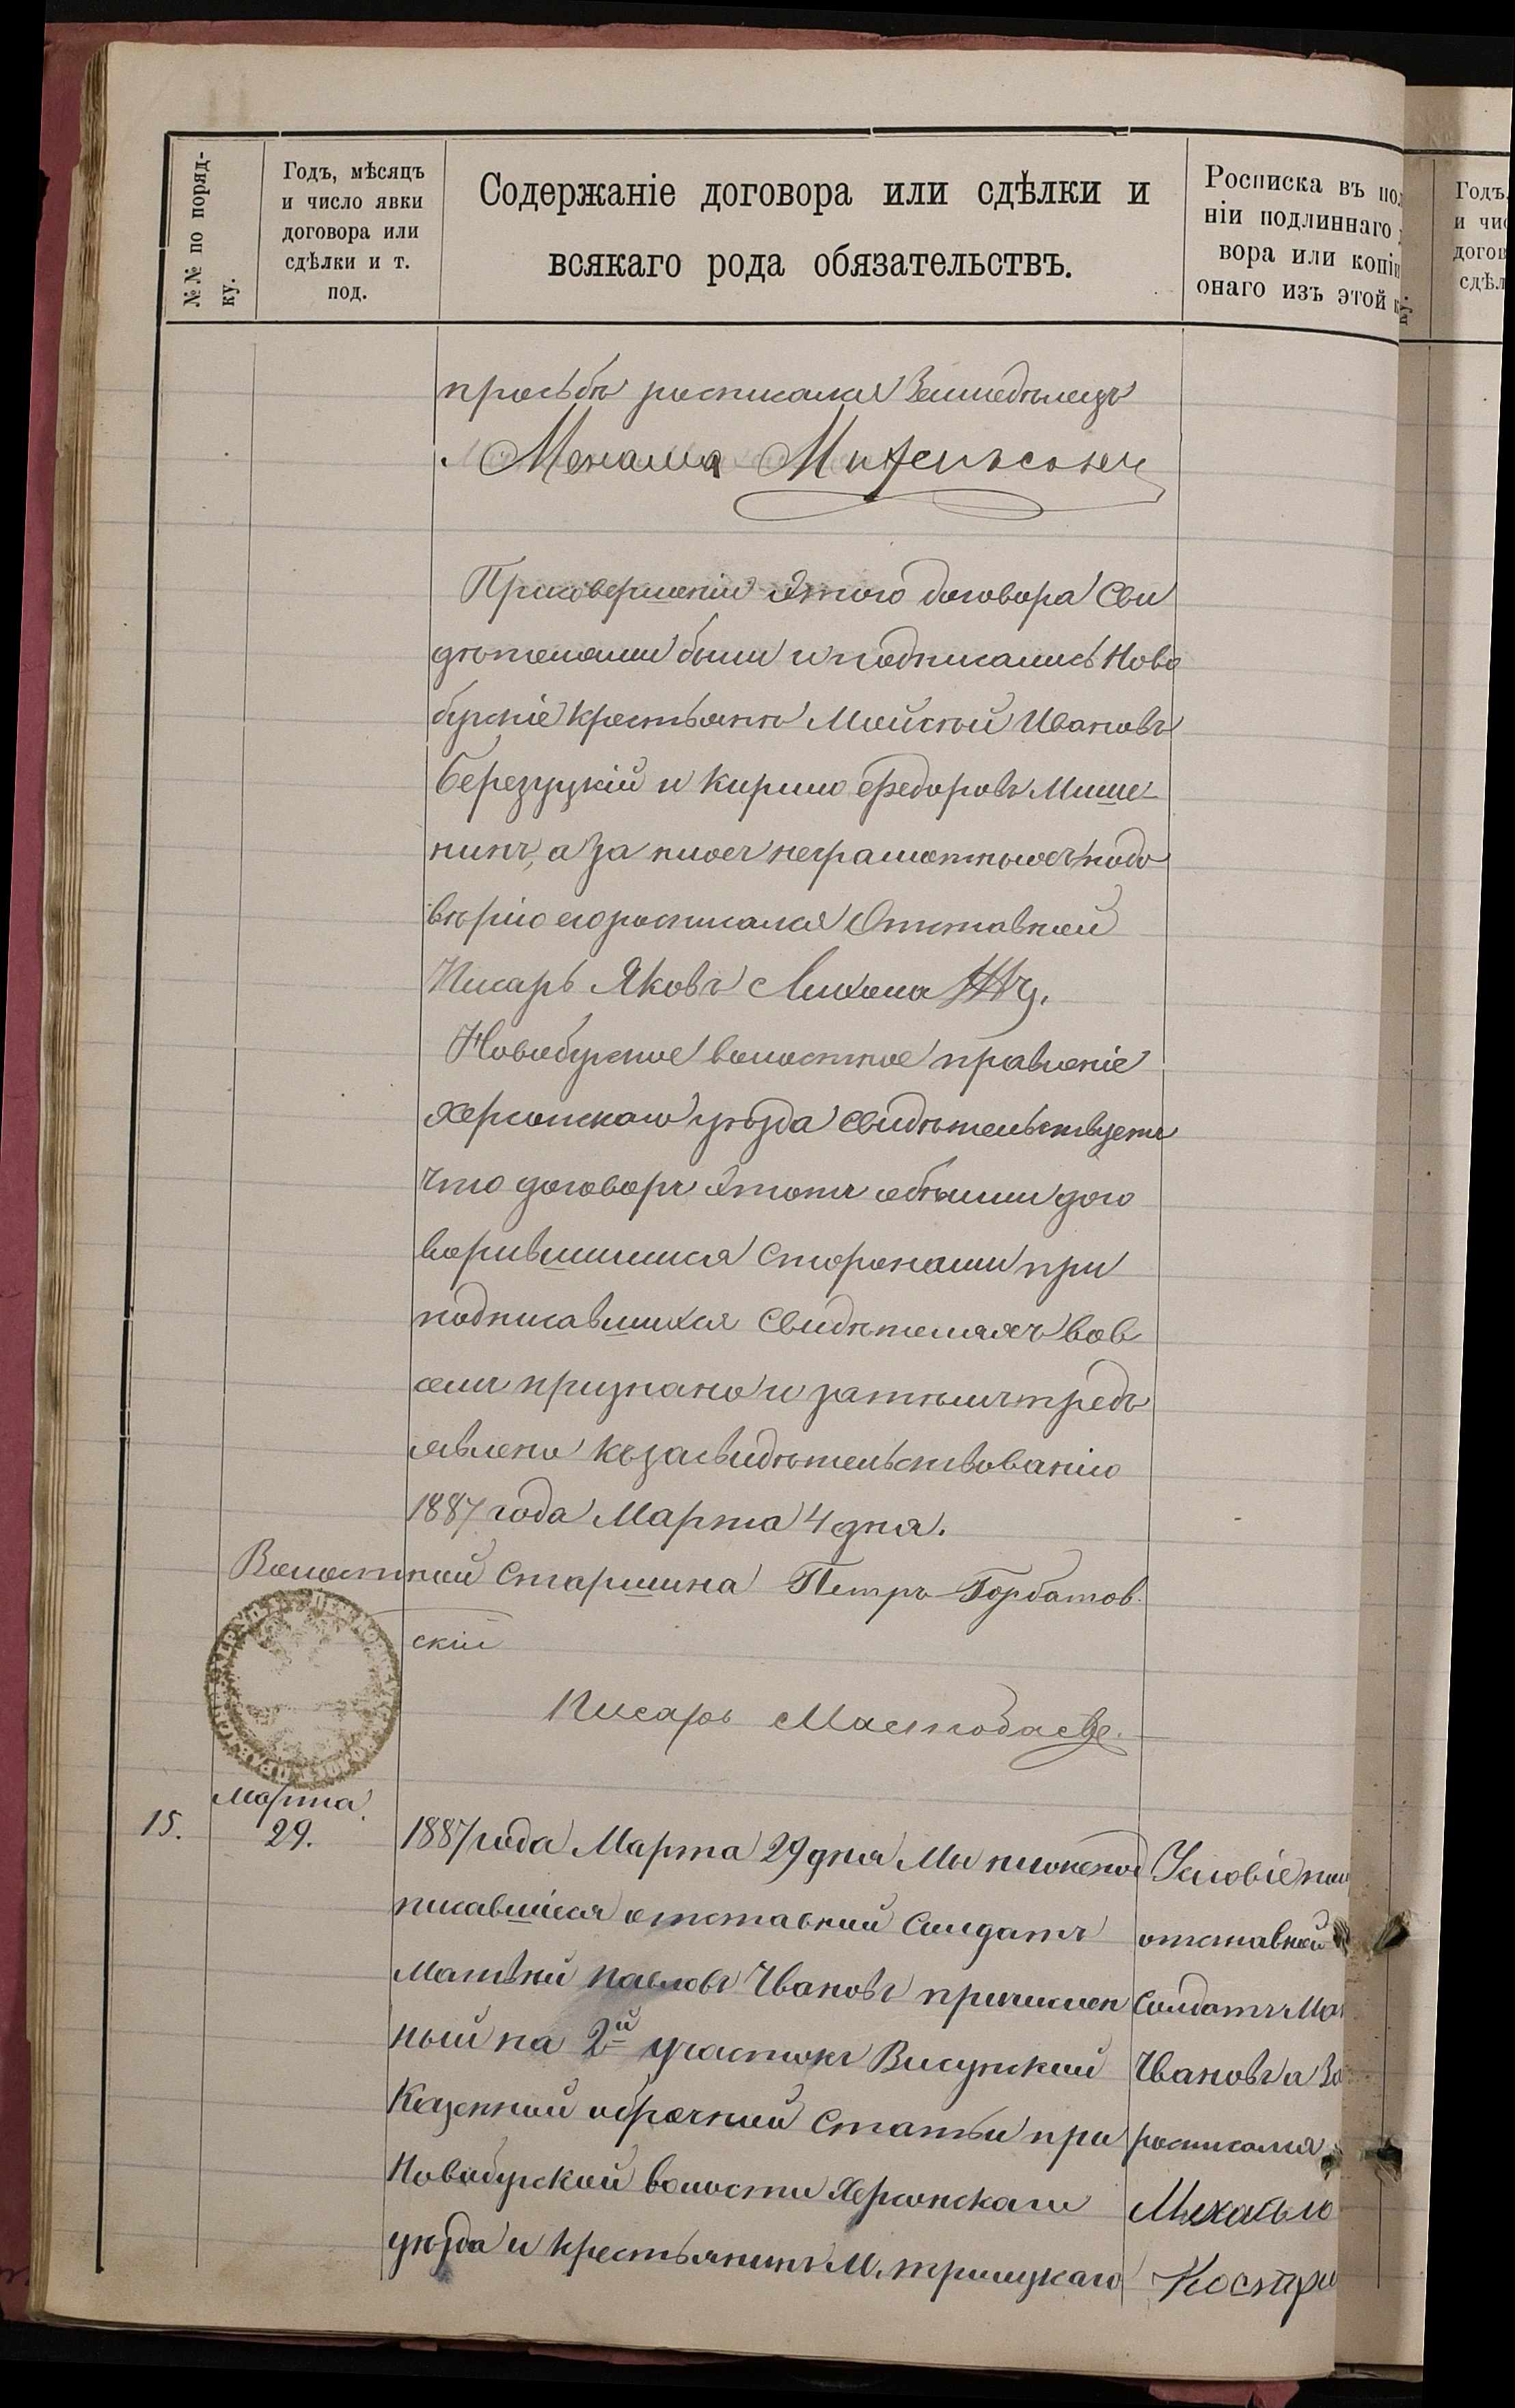 №№ по поряд-
ку.
Годъ, мѣсяцъ
и число явки
договора или
сдѣлки и т.
под.
Содержаніе договора или сдѣлки и
всякаго рода обязательствъ.
Росписка въ пол
ніи подлиннаго
вора или копіи
онаго изъ этой к
Годъ,
и чис
догов
сдѣл
просьбѣ росписался Земледѣлецъ
Менаша
При совершеніи этого договора сви
дѣтелями были и подписались Ново
бугскіе крестьяне Мойсей Ивановъ
Березуцкій и Кирило Федоровъ Мише-
нинъ, а за нихъ неграмотныхъ по до
вѣрію его росписался Отставной
Писарь Яковъ
Новобугское волостное правленіе
Херсонскаго уѣзда свидѣтельствуетъ
что договоръ этотъ обѣими дого
ворившимися сторонами при
подписавшихся свидѣтеляхъ вов
семъ признано и затѣмъ предъ
явлено къ засвидѣтельствованію
1887 года Марта 4 дня.
Волостной Старшина Петръ Горбатов
скій
Писарь
15.
Марта
29.
1887 года Марта 29 дня Мы нижепод
писавшіеся отставной Солдатъ
Матвѣй Павловъ Чвановъ причислен
ный на 2й участокъ Висунской
Казенной оброчной Статьи при
Новобугской волости Херсонскаго
уѣзда и крестьянинъ М. Троицкаго
Условіе пол
отставной
Солдатъ Мат
Чвановъ а За
росписался
Михайло
Костри